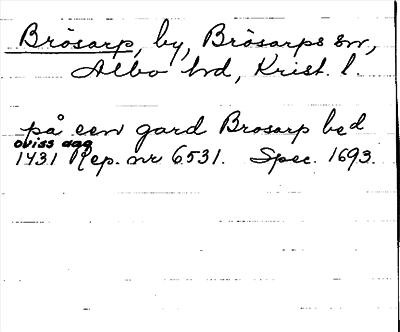 Brösarp, by, Brösarps sn,
Albo hd, Krist. l.
på een gard Brosarp bed
oviss dag
1431 Rep. nr 6531. Spec. 1693.